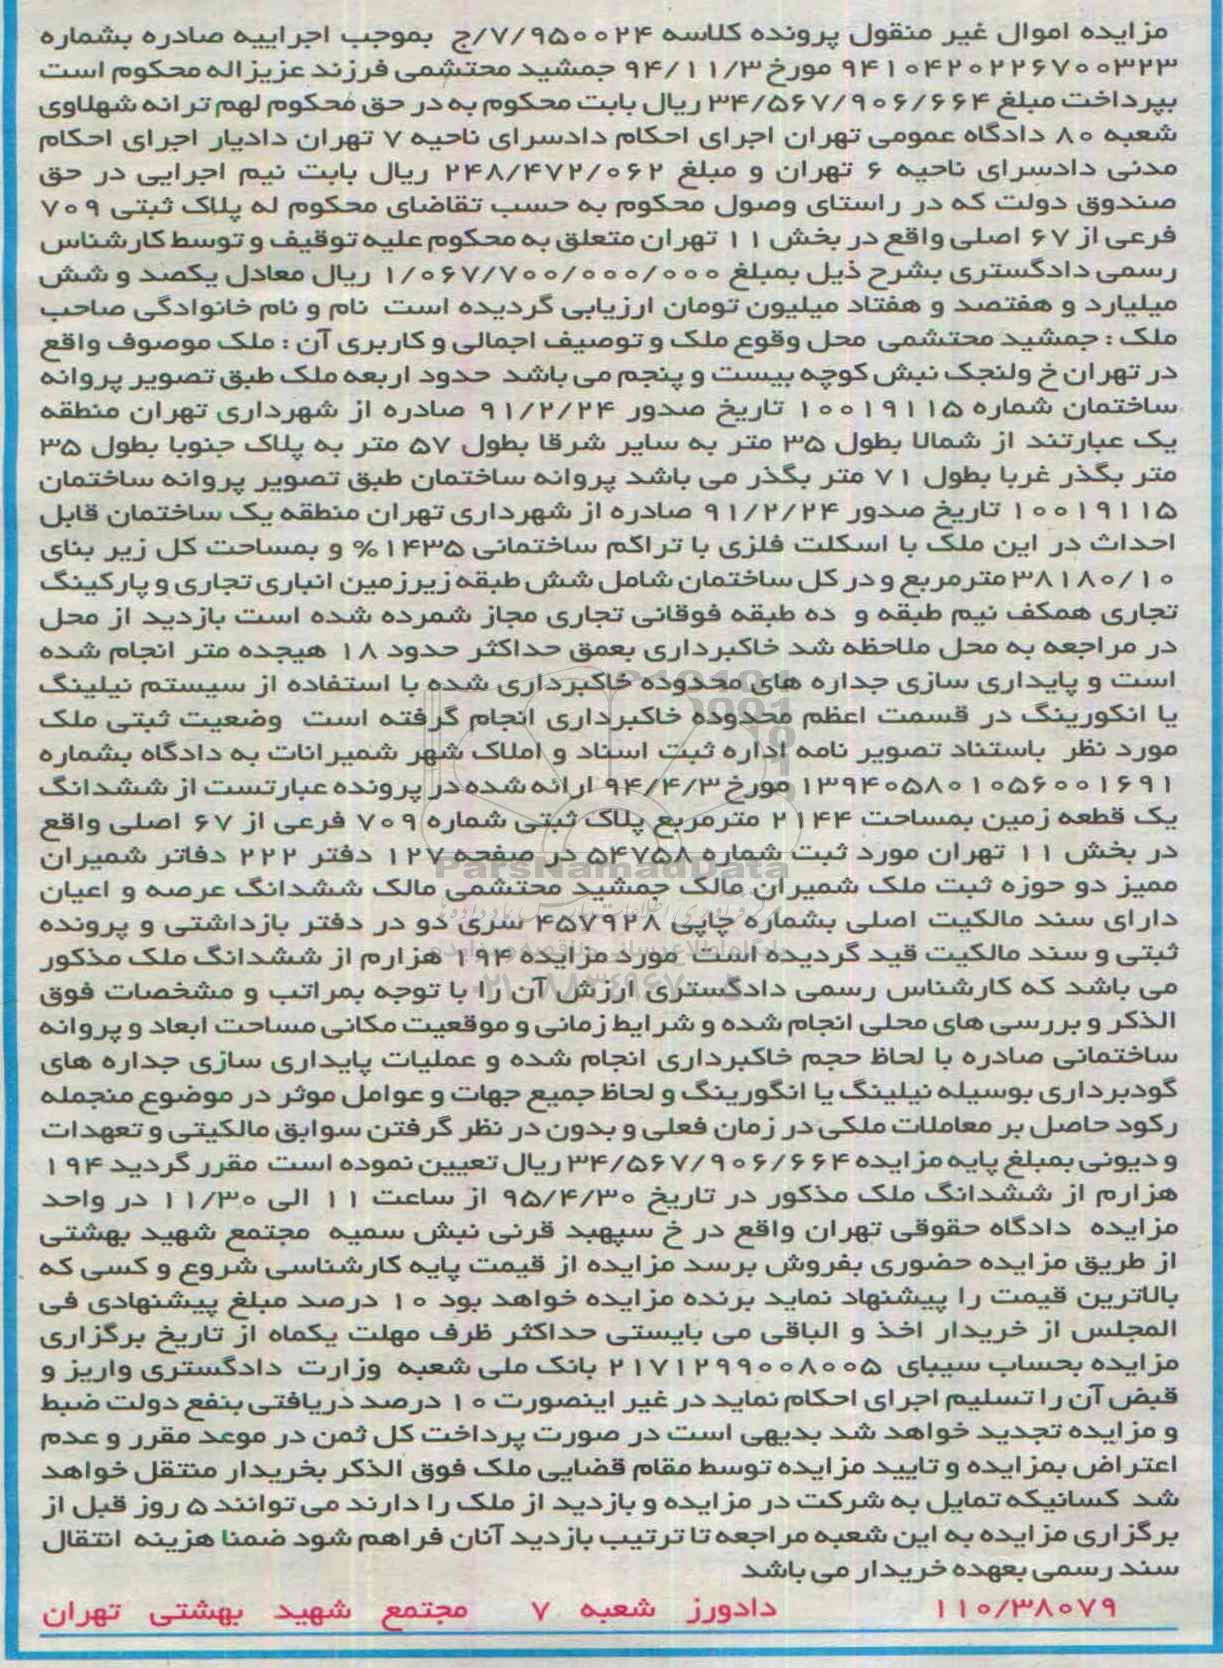 مزایده اموال غیر منقول پرونده کلاسه ۷/۹۵۰۰۲۴/ج بموجب اجراییه صادره بشماره
۹۴۱۰۴۲۰۲۲۶۷۰۰۳۲۳ مورخ ۹۴/۱۱/۳ جمشید محتشمی فرزند عزیزاله محکوم است
بپرداخت مبلغ ۳۴/۵۶۷/۹۰۶/۶۶۴ ریال بابت محکوم به در حق محکوم لهم ترانه شهلاوی
شعبه ۸۰ دادگاه عمومی تهران اجرای احکام دادسرای ناحیه ۷ تهران دادیار اجرای احکام
مدنی دادسرای ناحیه ۶ تهران و مبلغ ۲۴۸/۴۷۲/۰۶۲ ریال بابت نیم اجرایی در حق
صندوق دولت که در راستای وصول محکوم به حسب تقاضای محکوم له پلاک ثبتی ۷۰۹
فرعی از ۶۷ اصلی واقع در بخش ۱۱ تهران متعلق به محکوم علیه توقیف و توسط کارشناس
رسمی دادگستری بشرح ذیل بمبلغ ۱/۰۶۷/۷۰۰/۰۰۰/۰۰۰ ریال معادل یکصد و شش
میلیارد و هفتصد و هفتاد میلیون تومان ارزیابی گردیده است نام و نام خانوادگی صاحب
ملک : جمشید محتشمی محل وقوع ملک و توصیف اجمالی و کاربری آن : ملک موصوف واقع
در تهران خ ولنجک نبش کوچه بیست و پنجم می باشد حدود اربعه ملک طبق تصویر پروانه
ساختمان شماره ۱۰۰۱۹۱۱۵ تاریخ صدور ۹۱/۲/۲۴ صادره از شهرداری تهران منطقه
یک عبارتند از شمالا بطول ۳۵ متر به سایر شرقا بطول ۵۷ متر به پلاک جنوبا بطول ۳۵
متر بگذر غربا بطول ۷۱ متر بگذر می باشد پروانه ساختمان طبق تصویر پروانه ساختمان
۱۰۰۱۹۱۱۵ تاریخ صدور ۹۱/۲/۲۴ صادره از شهرداری تهران منطقه یک ساختمان قابل
احداث در این ملک با اسکلت فلزی با تراکم ساختمانی ۱۴۳۵% و بمساحت کل زیر بنای
۳۸۱۸۰/۱۰ مترمربع و در کل ساختمان شامل شش طبقه زیرزمین انباری تجاری و پارکینگ
تجاری همکف نیم طبقه و ده طبقه فوقانی تجاری مجاز شمرده شده است بازدید از محل
در مراجعه به محل ملاحظه شد خاکبرداری بعمق حداکثر حدود ۱۸ هیجده متر انجام شده
است و پایداری سازی جداره های محدوده خاکبرداری شده با استفاده از سیستم نیلینگ
یا انکورینگ در قسمت اعظم محدوده خاکبرداری انجام گرفته است وضعیت ثبتی ملک
مورد نظر باستناد تصویر نامه اداره ثبت اسناد و املاک شهر شمیرانات به دادگاه بشماره
۱۳۹۴۰۵۸۰۱۰۵۶۰۰۱۶۹۱ مورخ ۹۴/۴/۳ ارائه شده در پرونده عبارتست از ششدانگ
یک قطعه زمین بمساحت ۲۱۴۴ مترمربع پلاک ثبتی شماره ۷۰۹ فرعی از ۶۷ اصلی واقع
در بخش ۱۱ تهران مورد ثبت شماره ۵۴۷۵۸ در صفحه ۱۲۷ دفتر ۲۲۲ دفاتر شمیران
ممیز دو حوزه ثبت ملک شمیران مالک جمشید محتشمی مالک ششدانگ عرصه و اعیان
دارای سند مالکیت اصلی بشماره چاپی ۴۵۷۹۲۸ سری دو در دفتر بازداشتی و پرونده
ثبتی و سند مالکیت قید گردیده است مورد مزایده ۱۹۴ هزارم از ششدانگ ملک مذکور
می باشد که کارشناس رسمی دادگستری ارزش آن را با توجه بمراتب و مشخصات فوق
الذکر و بررسی های محلی انجام شده و شرایط زمانی و موقعیت مکانی مساحت ابعاد و پروانه
ساختمانی صادره با لحاظ حجم خاکبرداری انجام شده و عملیات پایداری سازی جداره های
گودبرداری بوسیله نیلینگ یا انگورینگ و لحاظ جمیع جهات و عوامل موثر در موضوع منجمله
رکود حاصل بر معاملات ملکی در زمان فعلی و بدون در نظر گرفتن سوابق مالکیتی و تعهدات
و دیونی بمبلغ پایه مزایده ۳۴/۵۶۷/۹۰۶/۶۶۴ ریال تعیین نموده است مقرر گردید ۱۹۴
هزارم از ششدانگ ملک مذکور در تاریخ ۹۵/۴/۳۰ از ساعت ۱۱ الی ۱۱/۳۰ در واحد
مزایده دادگاه حقوقی تهران واقع در خ سپهبد قرنی نبش سمیه مجتمع شهید بهشتی
از طریق مزایده حضوری بفروش برسد مزایده از قیمت پایه کارشناسی شروع و کسی که
بالاترین قیمت را پیشنهاد نماید برنده مزایده خواهد بود ۱۰ درصد مبلغ پیشنهادی فی
المجلس از خریدار اخذ و الباقی می بایستی حداکثر ظرف مهلت یکماه از تاریخ برگزاری
مزایده بحساب سیبای ۲۱۷۱۲۹۹۰۰۸۰۰۵ بانک ملی شعبه وزارت دادگستری واریز و
قبض آن را تسلیم اجرای احکام نماید در غیر اینصورت ۱۰ درصد دریافتی بنفع دولت ضبط
و مزایده تجدید خواهد شد بدیهی است در صورت پرداخت کل ثمن در موعد مقرر و عدم
اعتراض بمزایده و تایید مزایده توسط مقام قضایی ملک فوق الذکر بخریدار منتقل خواهد
شد کسانیکه تمایل به شرکت در مزایده و بازدید از ملک را دارند می توانند ۵ روز قبل از
برگزاری مزایده به این شعبه مراجعه تا ترتیب بازدید آنان فراهم شود ضمنا هزینه انتقال
سند رسمی بعهده خریدار می باشد
۱۱۰/۳۸۰۷۹ دادورز شعبه ۷ مجتمع شهید بهشتی تهران
ParsNamadData